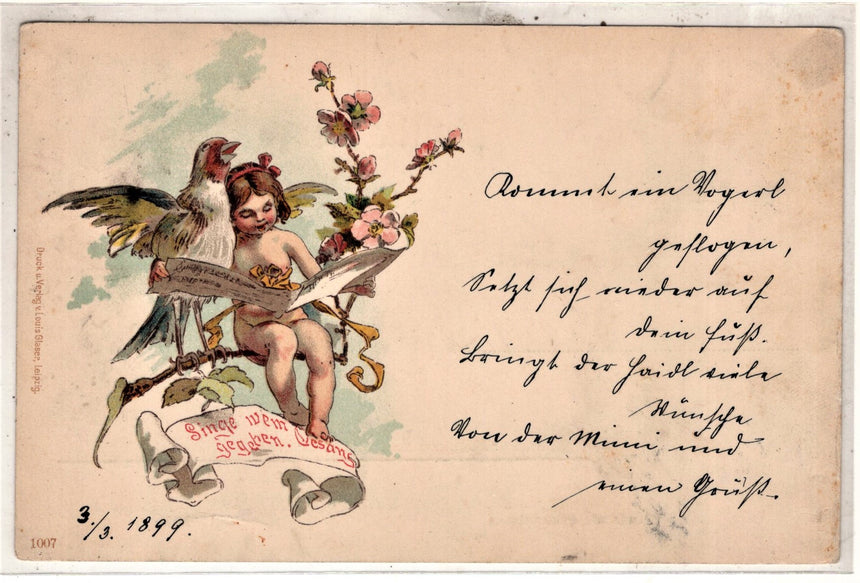 Druck u. Verlag v. Louis Glaser, Leipzig.
Singe wem Gesang
gegeben.
3./3. 1899.
1007
Kommt ein Vogerl
geflogen,
Setzt sich nieder auf
dein Fuß.
Bringt der Haidl viele
Wünsche
Von der Mimi und
einen Grüß.